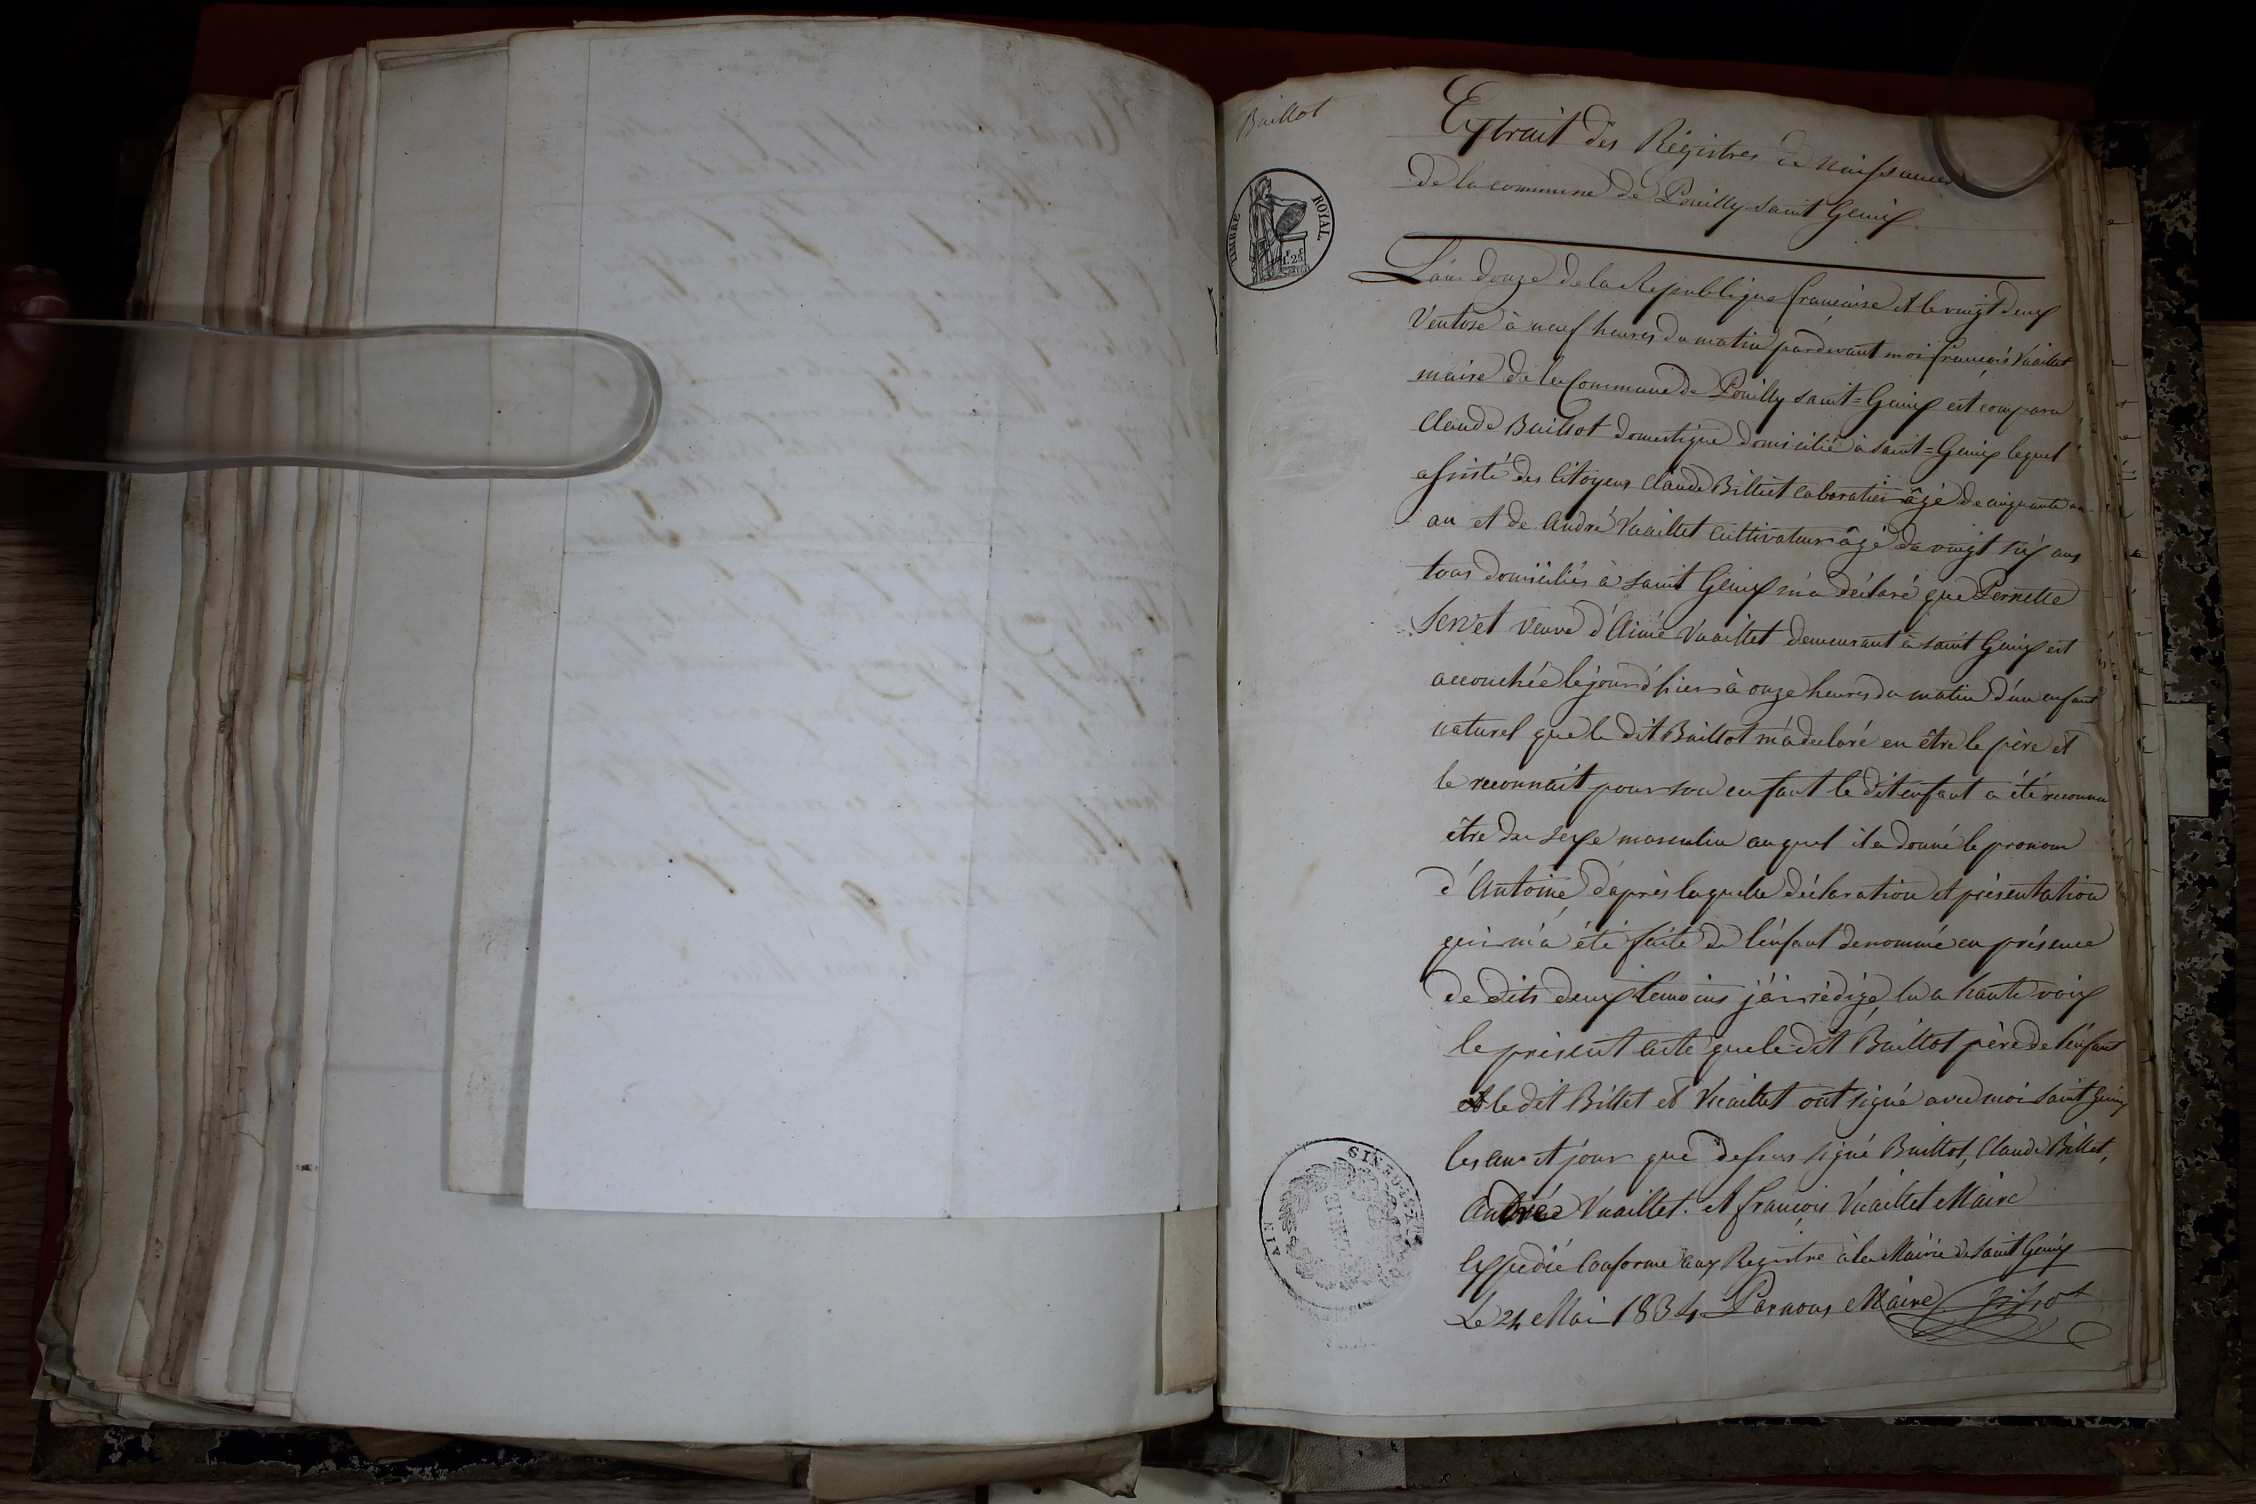 Baillot
Extrait des Régistres de Naissances
de la commune de Pouilly Saint Genix
TIMBRE ROYAL
1f. 25c
L'an douze de la République francaise et le vingt deux
Ventose à neuf heures du matin pardevant moi francois Vuaillet
maire de la Commune de Pouilly saint=Genix est comparu
Claude Baillot domestique domicilié à saint=Genix lequel
assisté des Citoyens Claude Billiet laboratier âgé de cinquante un
an et de André Vuaillet Cultivateur âgé de vingt six ans
tous domiciliés à saint Genix m'a déclaré que Pernette
Servet veuve d'Aimé Vuaillet demeurant à saint Genix est
accouchée le jour d'hier à onze heures du matin d'un enfant
naturel que le dit Baillot m'a declaré en être le père et
le reconnait pour son enfant le dit enfant a été reconnu
être du sexe masculin auquel il a donné le pronom
d'Antoine d'après laquelle déclaration et présentation
qui m'a été faite de l'enfant denommé en présence
de dits deux temoins j'ai rédigé, lu a haute voix
le présent acte que le dit Baillot père de l'enfant
et le dit Billet et Vuaillet ont signé avec moi saint Genix
les an et jour que dessus signé Baillot, Claude Billet,
André Vuaillet. et francois Vuaillet Maire
Expedié conforme aux Registre à la Mairie de Saint Genix
Le 24 Mai 1834 Par nous Maire
AIN